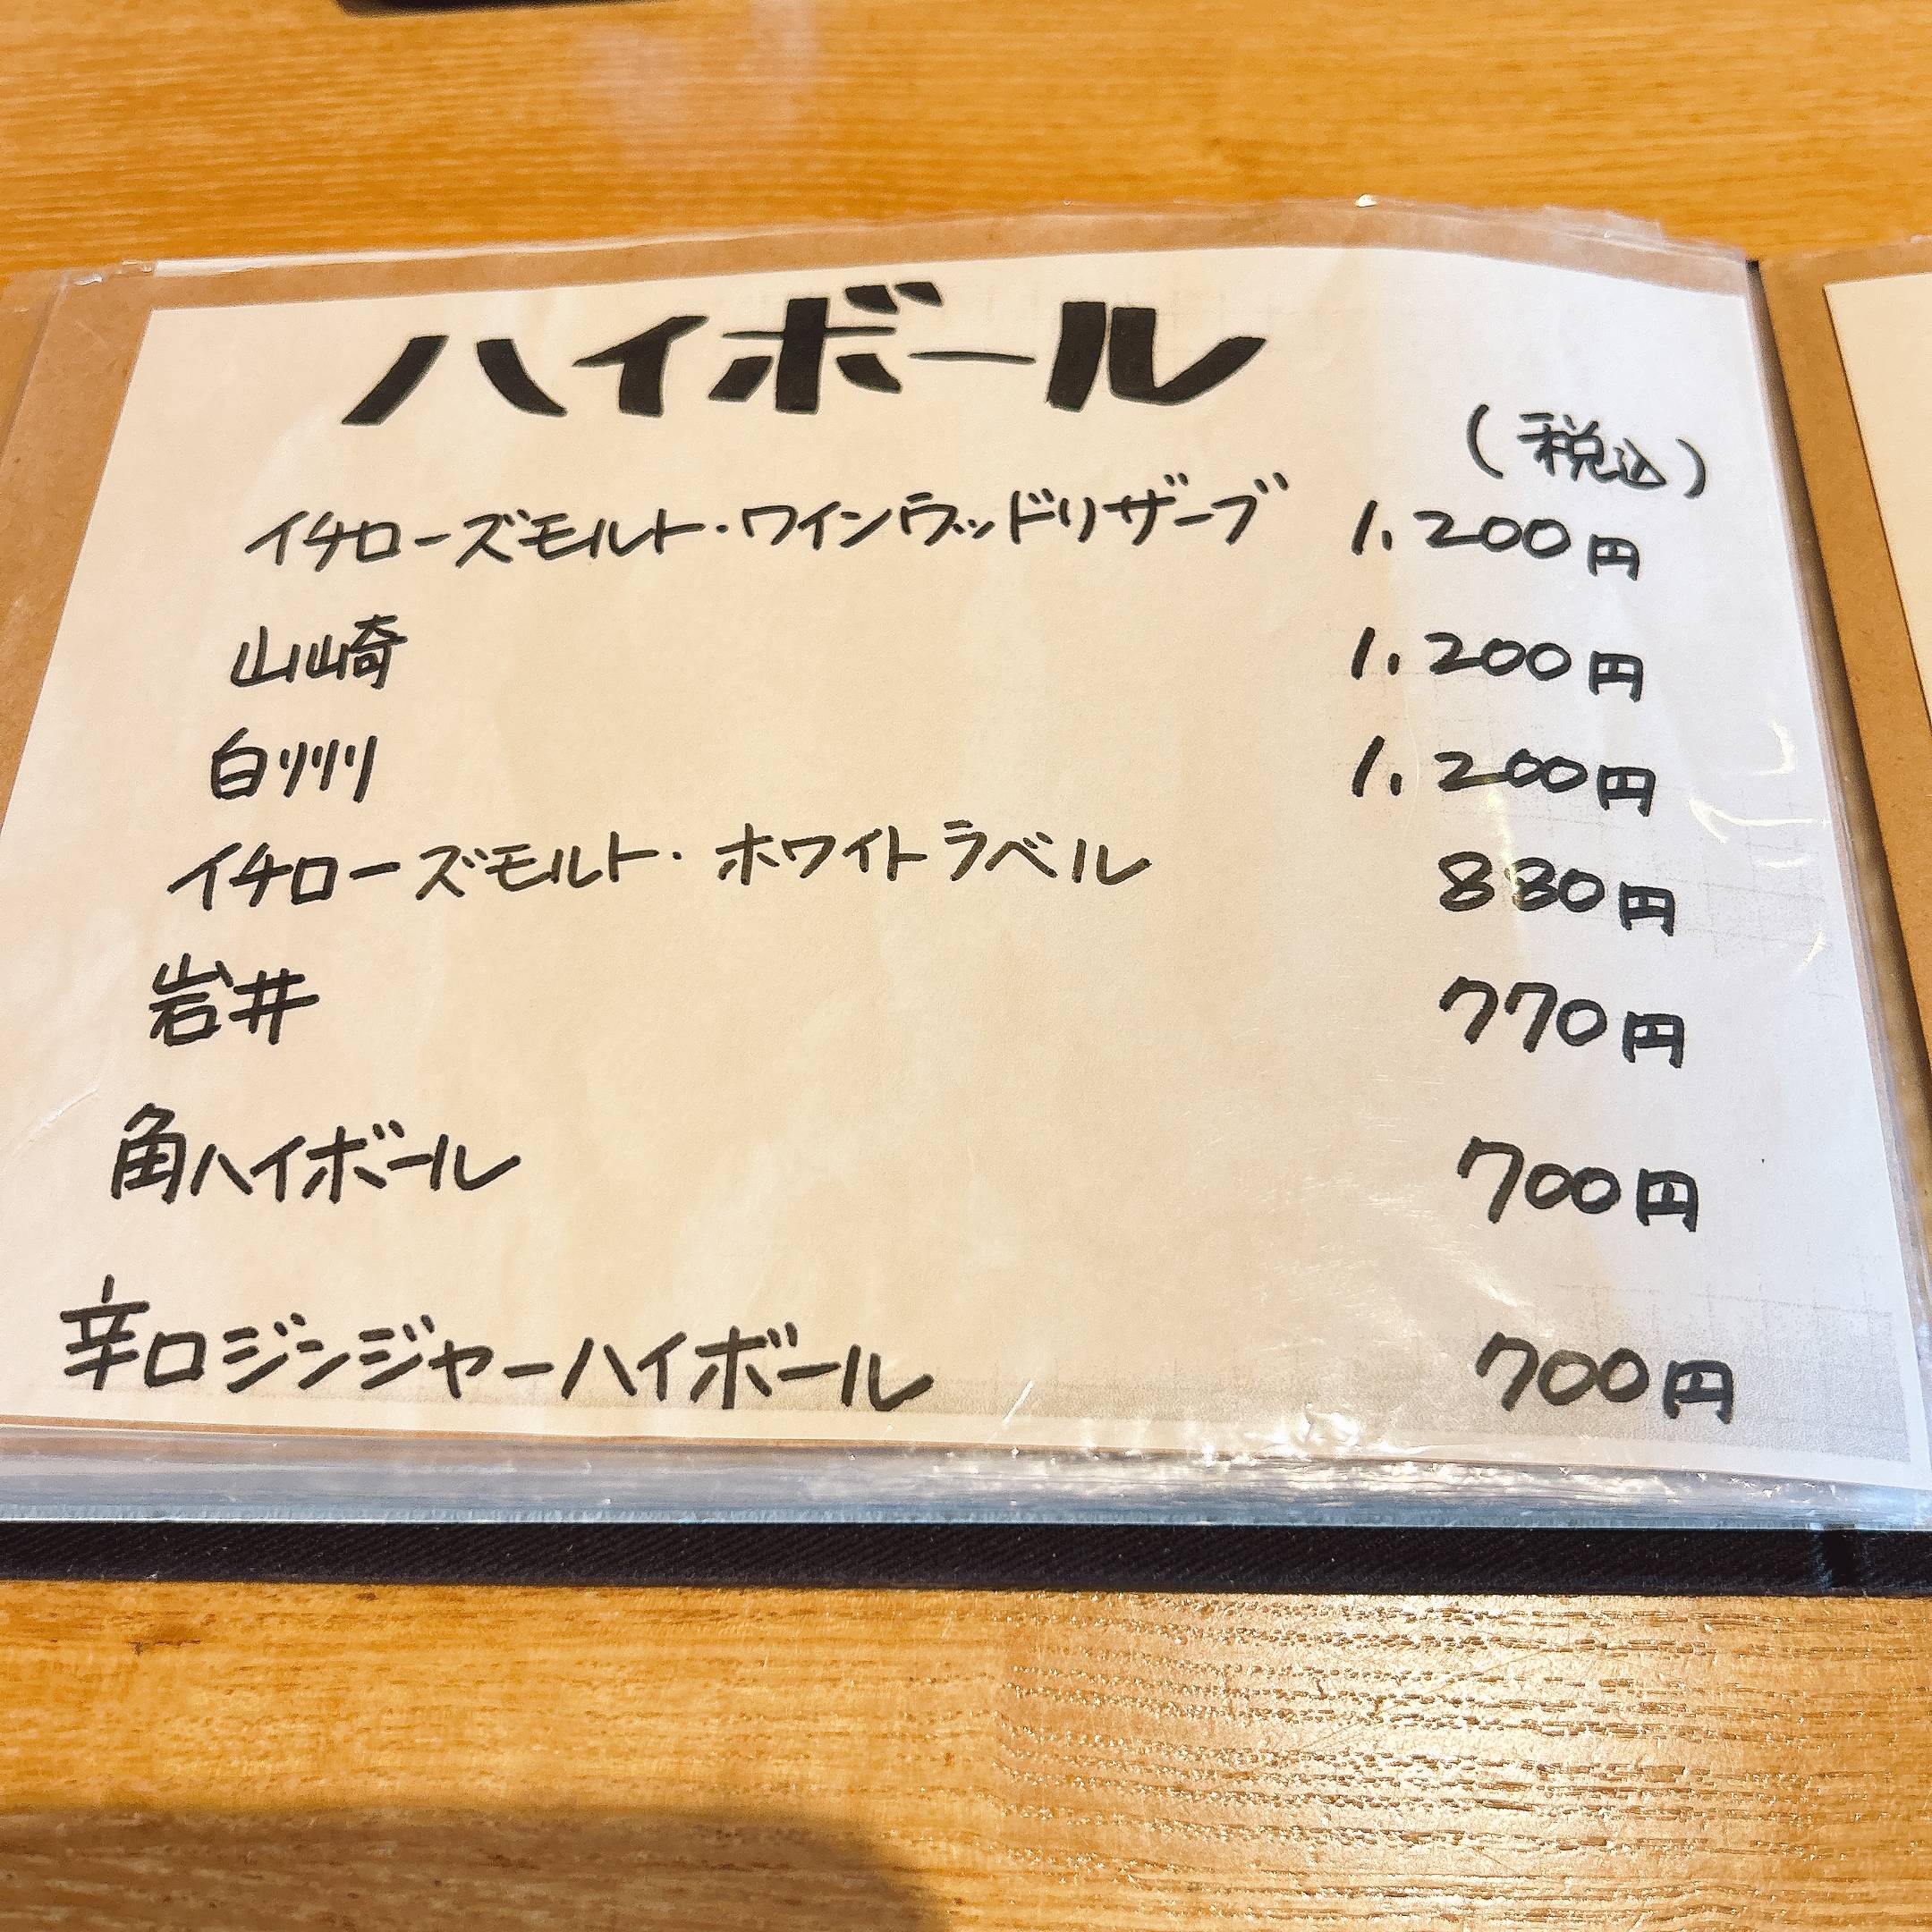 ハイボール
(税込)
イチローズモルト・ワインウッドリザーブ 1,200円
山崎 1,200円
白州 1,200円
イチローズモルト・ホワイトラベル 880円
岩井 770円
角ハイボール 700円
辛口ジンジャーハイボール 700円